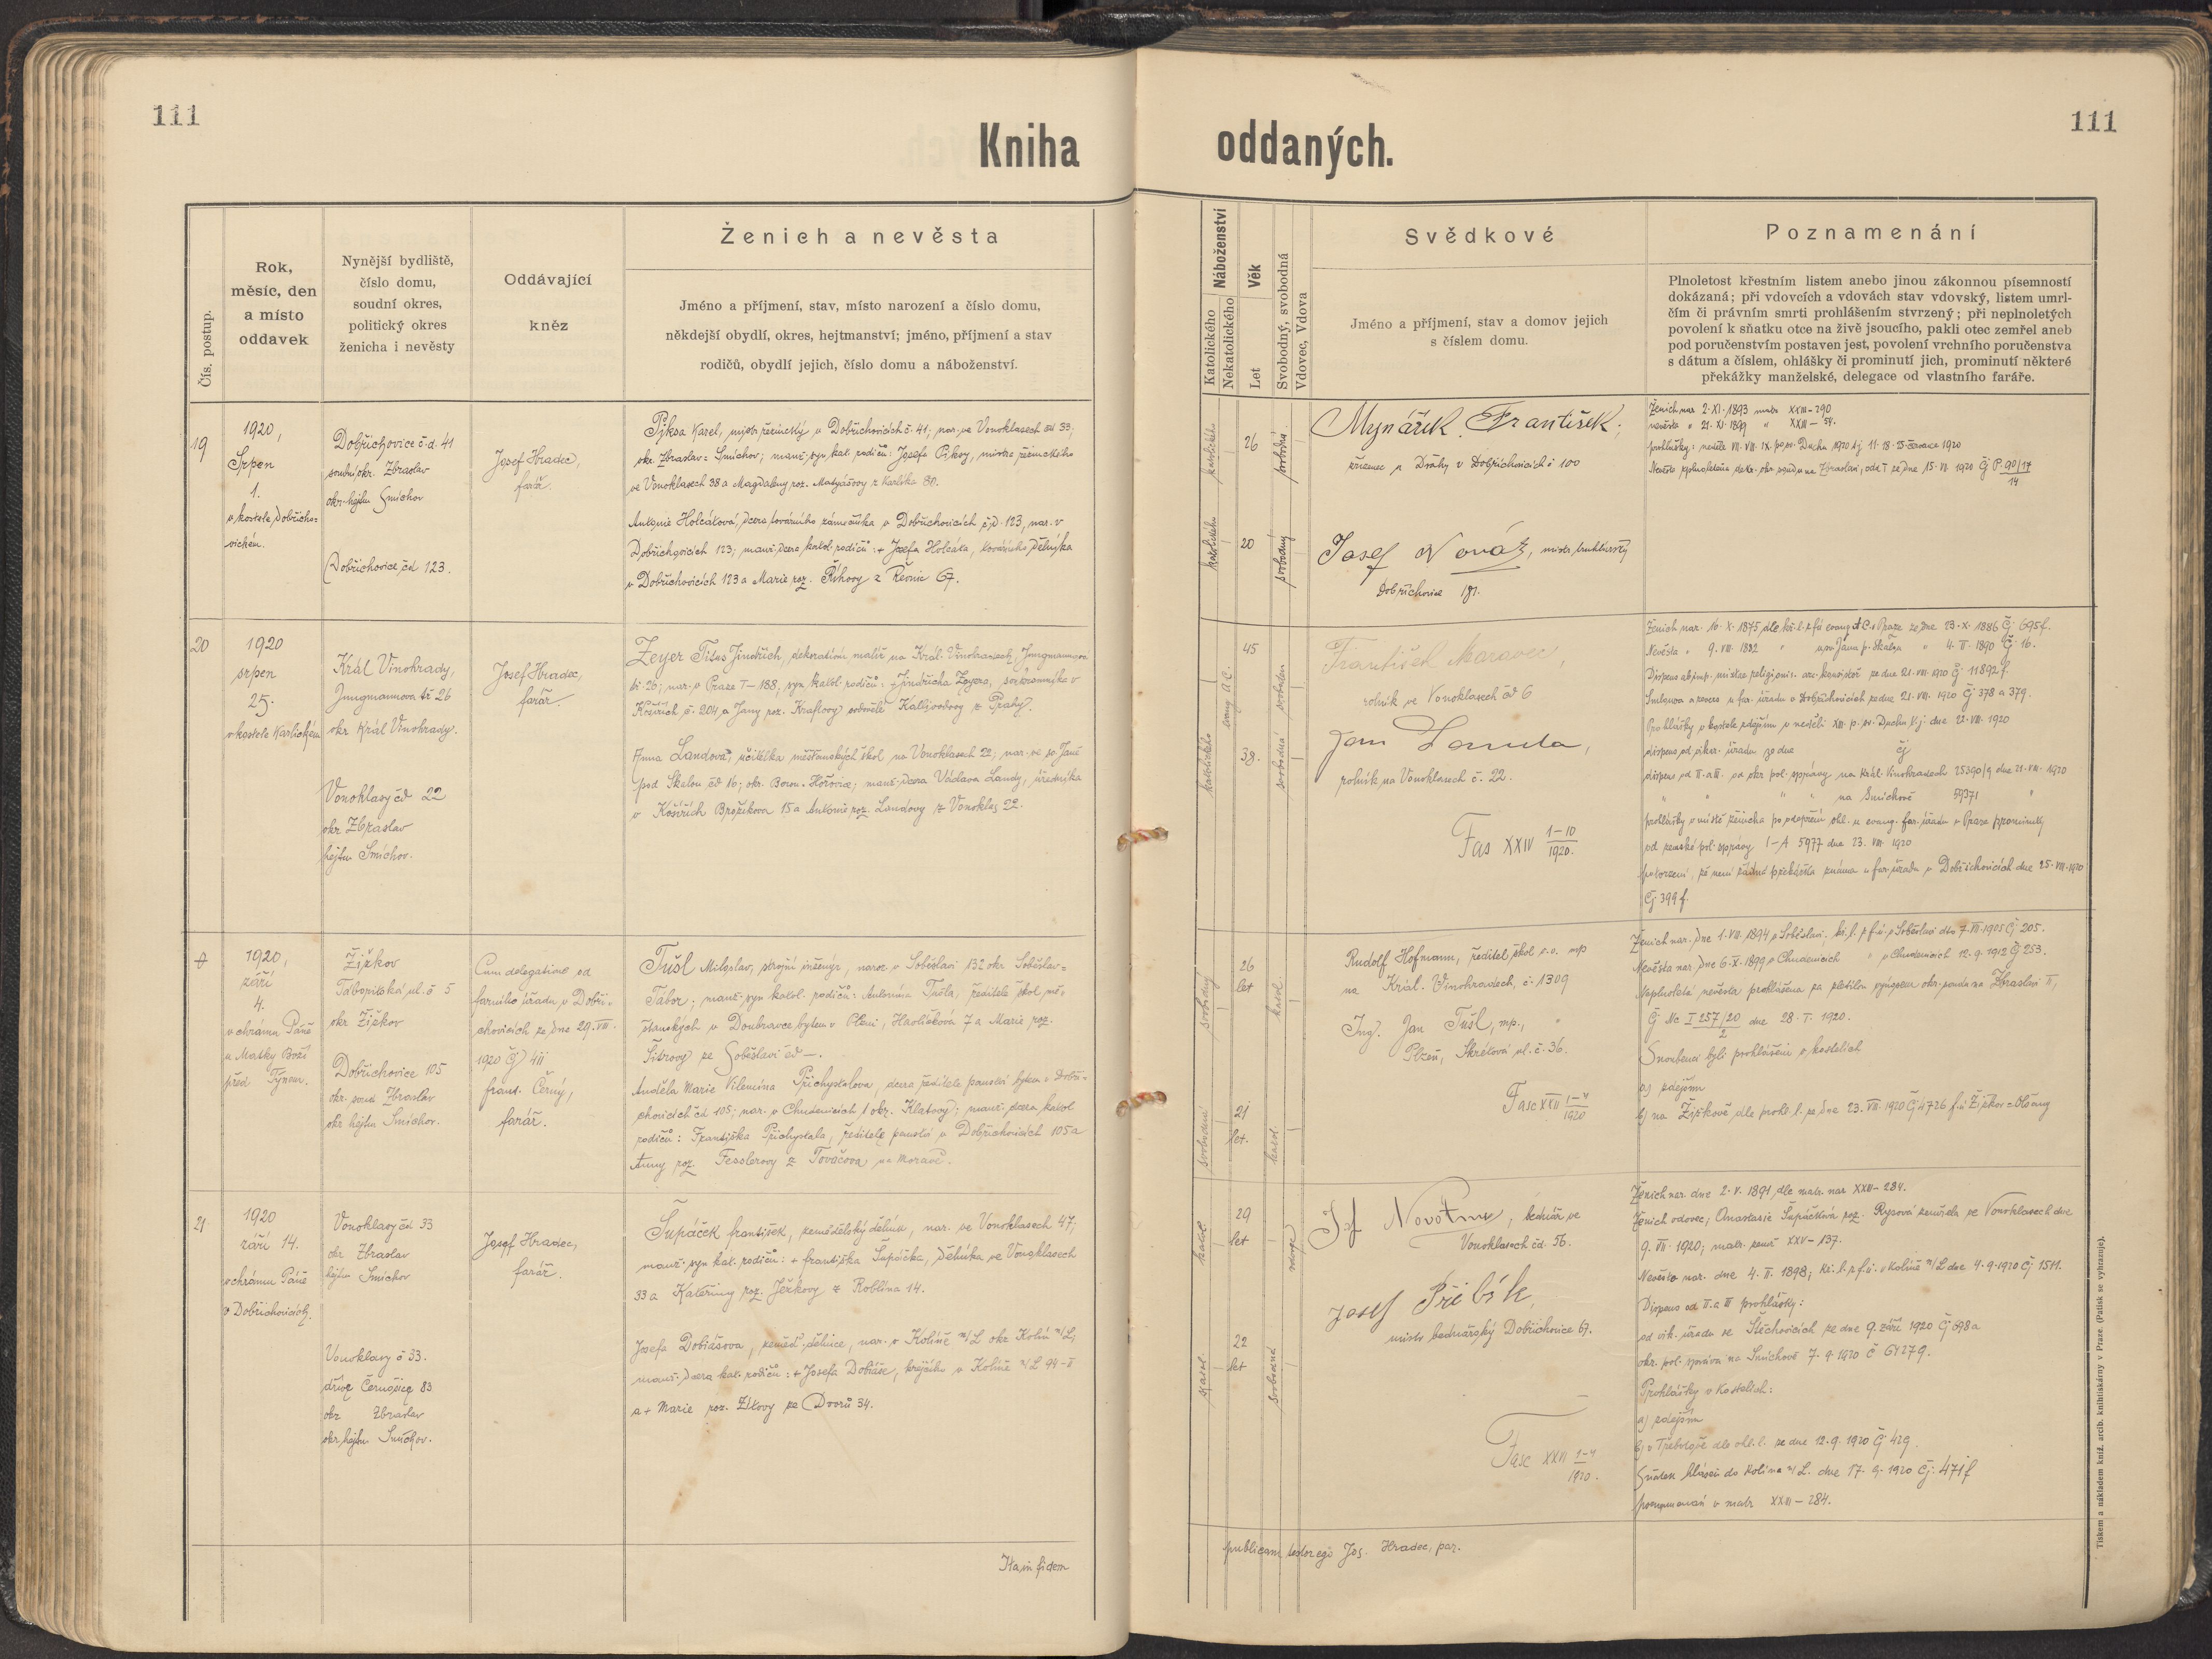 111
Kniha
Čís. postup.
Rok,
měsíc, den
a místo
oddavek
Nynější bydliště,
číslo domu,
soudní okres,
politický okres
ženicha i nevěsty
Oddávající
kněz
Ženich a nevěsta
Jméno a příjmení, stav, místo narození a číslo domu,
někdejší obydlí, okres, hejtmanství; jméno, příjmení a stav
rodičů, obydlí jejich, číslo domu a náboženství.
19
1920,
Srpen
1.
v kostele Dobřicho-
vickém.
Dobřichovice č.d. 41
soudní okr. Zbraslav
okr. hejtm Smíchov
Dobřichovice čd 123.
Josef Hradec,
farář.
Karel, mistr řeznický v Dobřichovicích č. 41; nar. ve Vonoklasech čd 33;
okr. Zbraslav-Smíchov; manž. syn kat. rodičů: Josefa, mistra řeznického
ve Vonoklasech 38 a Magdaleny roz. Matyášovy z Karlíka 30.
Antonie Holcátová, dcera továrního zámečníka v Dobřichovicích č.d. 123, nar. v
Dobřichovicích 123; manž. dcera katol. rodičů: + Josefa Holcáta, továrního dělníka
v Dobřichovicích 123 a Marie roz. Říhovy z Řevnic 67.
20
1920
srpen
25.
v kostele Karlickém
Král Vinohrady,
Jungmannova tř 26
okr Král Vinohrady.
Vonoklasy čd 22
okr Zbraslav
hejtm Smíchov.
Josef Hradec,
farář.
Zeyer Titus Jindřich, dekorační malíř na Král. Vinohradech, Jungmannova
tř. 26; nar. v Praze I-188, syn katol. rodičů: + Jindřicha Zeyera, soukromníka v
Košířích č. 204 a Jany roz. Kraftovy z Prahy.
Anna Landová, učitelka měšťanských škol na Vonoklasech 22, nar. ve sv. Janě
pod Skalou čd 16; okr. Beroun-Hořovice; manž. dcera Václava Landy, úředníka
v Košířích Brožíkova 15 a Antonie roz. Landovy z Vonoklas 22.
1920,
září
4.
v chrámu Páně
u Matky Boží
před Týnem.
Žižkov
Táboritská ul. č 5
okr Žižkov
Dobřichovice 105
okr. soud Zbraslav
okr hejtm Smíchov.
Cum delegatione od
farního úřadu v Dobři-
chovicích ze dne 29. VII.
1920 Čj 411
frant. Černý,
farář.
Tušl Miloslav, strojní inženýr, naroz. v Soběslavi 132 okr Soběslav-
Tábor; manž. syn katol. rodičů: Antonína Tušla, ředitele škol mě-
šťanských v Doubravce bytem v Plzni, Havlíčkova 7 a Marie roz.
ze Soběslavi čd —.
Anděla Marie Vilemína Přichystalova, dcera ředitele panství bytem v Dobři-
chovicích čd 105; nar. v Chudenicích 1 okr. Klatovy; manž. dcera katol
rodičů: Františka Přichystala, ředitele panství v Dobřichovicích 105 a
Anny roz. Fesslerovy z Tovačova na Moravě.
21
1920
září 14.
v chrámu Páně
v Dobřichovicích.
Vonoklasy čd 33
okr Zbraslav
hejtm Smíchov
Vonoklasy č 33.
dříve Černošice 83
okr Zbraslav
okr hejtm Smíchov.
Josef Hradec,
farář.
Šupáček František, zemědělský dělník, nar. ve Vonoklasech 47;
manž. syn kat. rodičů: + františka Šupáčka, dělníka ve Vonoklasech
33 a Kateřiny roz. Ježkovy z Roblína 14.
Josefa Dobiášova, zeměd. dělnice, nar. v Kolíně n/L okr Kolín n/L;
manž. dcera kat. rodičů: + Josefa Dobiáše, krejčího v Kolíně n/L 44-I
a + Marie roz. ze Dvorů 34.
Ita in fidem
111
oddaných.
Náboženství
Katolického
Nekatolického
Věk
Let
Svobodný, svobodná
Vdovec, Vdova
Svědkové
Jméno a příjmení, stav a domov jejich
s číslem domu.
Poznamenání
Plnoletost křestním listem anebo jinou zákonnou písemností
dokázaná; při vdovcích a vdovách stav vdovský, listem umrl-
čím či právním smrti prohlášením stvrzený; při neplnoletých
povolení k sňatku otce na živě jsoucího, pakli otec zemřel aneb
pod poručenstvím postaven jest, povolení vrchního poručenstva
s dátum a číslem, ohlášky či prominutí jich, prominutí některé
překážky manželské, delegace od vlastního faráře.
katolického
26
katolického
20
Mynářík František,
zřízenec Dráhy v Dobřichovicích č 100
Josef Novák, mistr truhlářský
Dobřichovice 181.
Ženich nar 2. XI. 1893 matr XXIII-290
nevěsta " 21. XI. 1899 " XXIII-54.
prohlášky: neděle VII. VIII. IX. po sv. Duchu 1920 tj 11. 18. 25 července 1920
ze dne 15. VI. 1920 Čj P. 90/17
14
45
evang. A.C.
svoboden
katolického
38.
svobodná
František Moravec,
rolník ve Vonoklasech čd 6
Jan Landa,
rolník na Vonoklasech č. 22.
Fas XXIV 1-10
1920.
Ženich nar. 16. X. 1875 dle kř. l. z fú evang. A.C. v Praze ze dne 23. X. 1886 Čj. 695 f.
Nevěsta " 9. VIII. 1882 " u sv. Jana p. Skálou " 4. II. 1890 Čj 16.
Dispens ab imp. mixtae religionis arc. konsistoř ze dne 21. VIII. 1920 Čj. 11892 f.
Smlouva a reverz u far. úřadu v Dobřichovicích ze dne 21. VIII. 1920 Čj 378 a 379.
Prohlášky v kostele zdejším v neděli XIII. p. sv. Duchu t.j. dne 22. VIII. 1920
dispens od vikar. úřadu ze dne čj
dispens od II. a III. od okr pol. správy na Král. Vinohradech 25390/9 dne 21. VIII. 1920
" " " " na Smíchově 59371 "
od zemské pol. správy I-A 5977 dne 23. VIII 1920
potvrzení, že není žádná překážka známa u far. úřadu v Dobřichovicích dne 25. VIII. 1920
Čj 399 f.
svobodný
26
let
katol.
svobodná
21
let.
katol.
Rudolf Hofmann, ředitel škol v.v. mp
na Král. Vinohradech, č. 1309
Ing. Jan Tušl, mp.,
Plzeň, Skrétova ul. č. 36.
Fasc XXII 1-4
1920
Ženich nar. dne 1. VII. 1894 v Soběslavi, kř. l. z f.ú. v Soběslavi dto 7. VI. 1905 Čj 205.
Nevěsta nar. dne 6. X. 1899 v Chudenicích " v Chudenicích 12. 9. 1912 Čj 253.
Neplnoletá nevěsta prohlášena za zletilou výnosem okr. soudu na Zbraslavi II,
Čj Nc I 257/20 dne 28. I. 1920.
2
Snoubenci byli prohlášeni v kostelích
a) zdejším
b) na Žižkově dle prohl. l. ze dne 23. VIII. 1920 Čj 4726 f.ú Žižkov
katol.
29
let
vdovec
katol.
22
let
svobodná
Jos Novotný, bednář ve
Vonoklasech čd. 56.
Josef Přibík,
mistr bednářský Dobřichovice 67.
Fasc XXII 1-4
1920.
Ženich nar. dne 2. V. 1891 dle matr. nar XXIII-234.
Ženich vdovec, Anastasie Šupáčková roz. Rysová zemřela ve Vonoklasech dne
9. VII. 1920; matr. zemř XXV-137.
Nevěsta nar. dne 4. II. 1898; kř. l. z f.ú. v Kolíně n/L dne 4. 9. 1920 Čj 1511.
Dispens od II. a III prohlášky:
od vik. úřadu ve Štěchovicích ze dne 9. září 1920 Čj 698a
okr. pol. správa na Smíchově 7. 9. 1920 č 64279.
Prohlášky v kostelích:
a) zdejším
b) v Třebotově dle ohl. l. ze dne 12. 9. 1920 Čj 429.
Sňatek hlášen do Kolína n/L. dne 17. 9. 1920 čj. 471 f
poznamenán v matr XXIII-284.
publicam Jos. Hradec, par.
Tiskem a nákladem kníž. arcib. knihtiskárny v Praze. (Patisk se vyhrazuje).